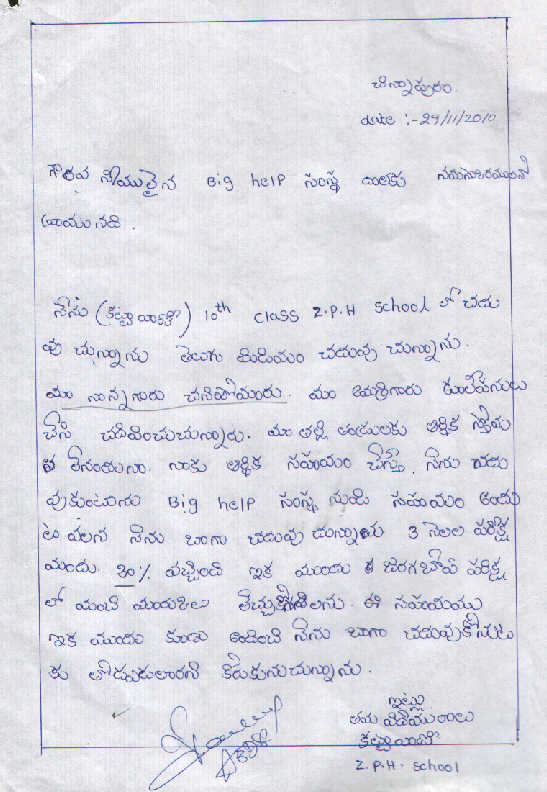 చిన్నాపురం.
date :- 29/11/2010
గౌరవ నీయులైన Big help సంస్థ వారికు నమస్కరించి
వ్రాయునది.
నేను () 10th class Z.P.H School లో చదు
వు చున్నాను తెలుగు మీడియం చదువు చున్నాను.
మా నాన్నగారు చనిపోయారు. మా అమ్మగారు కూలిపనులు
చేసి చదివించుచున్నారు. మా తల్లి తండ్రులకు ఆర్థిక స్తోమ
త లేనందున నాకు ఆర్థిక సహాయం చేస్తే నేను చదు
వుకుంటును Big help సంస్థ నుండి సహాయం అందు
ట వలన నేను బాగా చదువు చున్నాను 3 నెలల పరీక్ష
యందు 80% వచ్చింది ఇక ముందు జరగబోవు పరీక్ష
లో మంచి మార్కులు తెచ్చుకోగలను. ఈ సహాయము
ఇక ముందు కూడా అందించి నేను బాగా చదువుకొనుట
కు తోడ్పడగలరని కోరుకునుచున్నాను.
ఇట్లు
తమ విధేయురాలు
Z.P.H. School